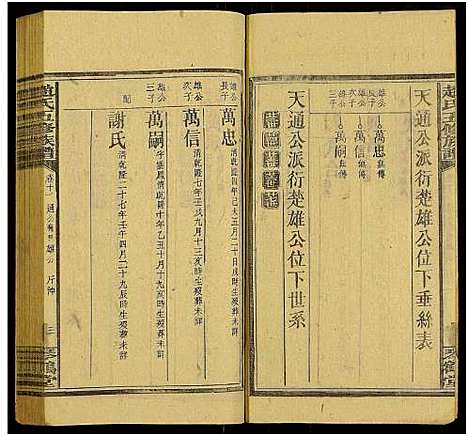 趙氏五修族譜
琴鶴堂
天通公派衍楚雄公位下垂絲表
雄公長子
萬忠無傳
次子
萬信無傳
三子
萬嗣無傳
天通公派衍楚雄公位下世系
雄公長子
萬忠
清乾隆四年己未五月二十日戌時生歿葬未詳
雄公次子
萬信
清乾隆七年壬戌九月十三亥時生歿葬未詳
雄公三子
萬嗣
清乾隆
年乙亥十月十九亥時生歿葬未詳
配
謝氏
清乾隆二十七年壬午四月二十九辰時生歿葬未詳
趙氏五修族譜
卷十一
三
琴鶴堂